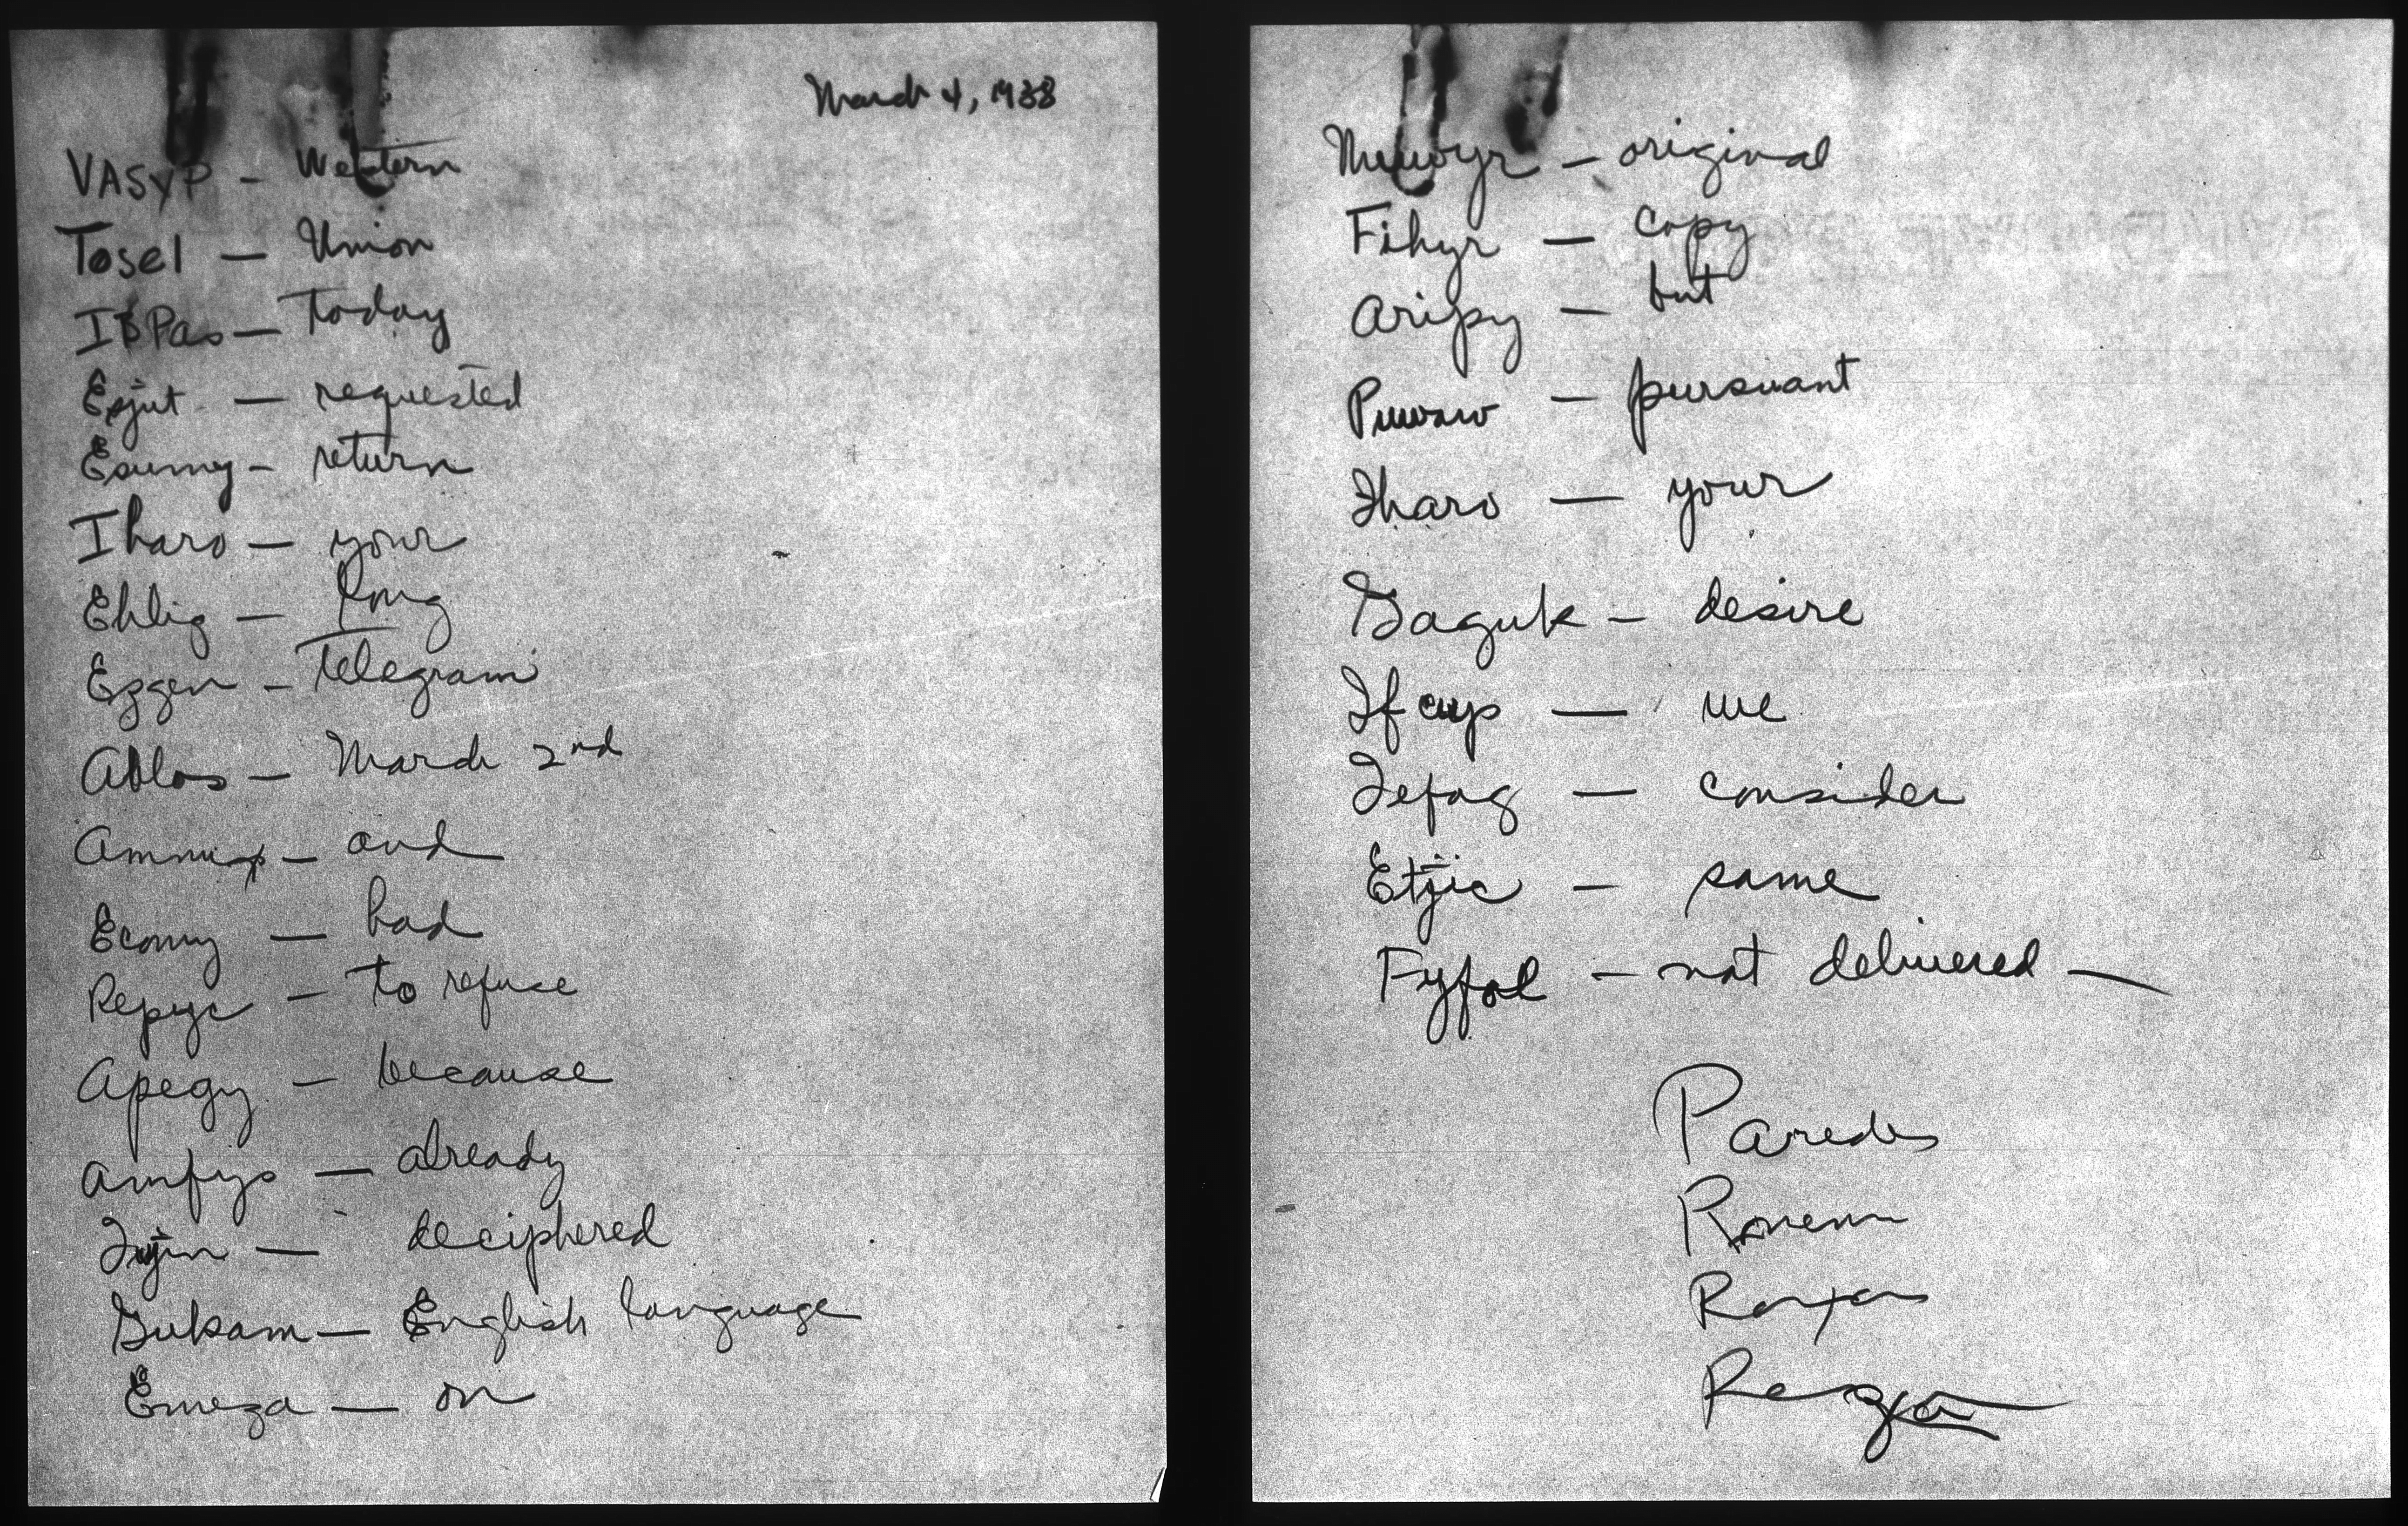 March 4, 1938
VASYP - Western
Tosel - Union
IBPas - Today
Epjut - requested
Esumy - return
Iharo - your
Ehlig - long
Ezgen - Telegram
Ablos - March 2nd
- and
Ecomy - had
Repyc - to refuse
Apegy - because
Amfys - already
- deciphered
Gukam - English language
Emeza - on
- original
Fihyr - copy
Aripy - but
- pursuant
Iharo - your
Gaguk - desire
- we
Iefag - consider
Etjic - same
Fyfol - not delivered -
Paredes